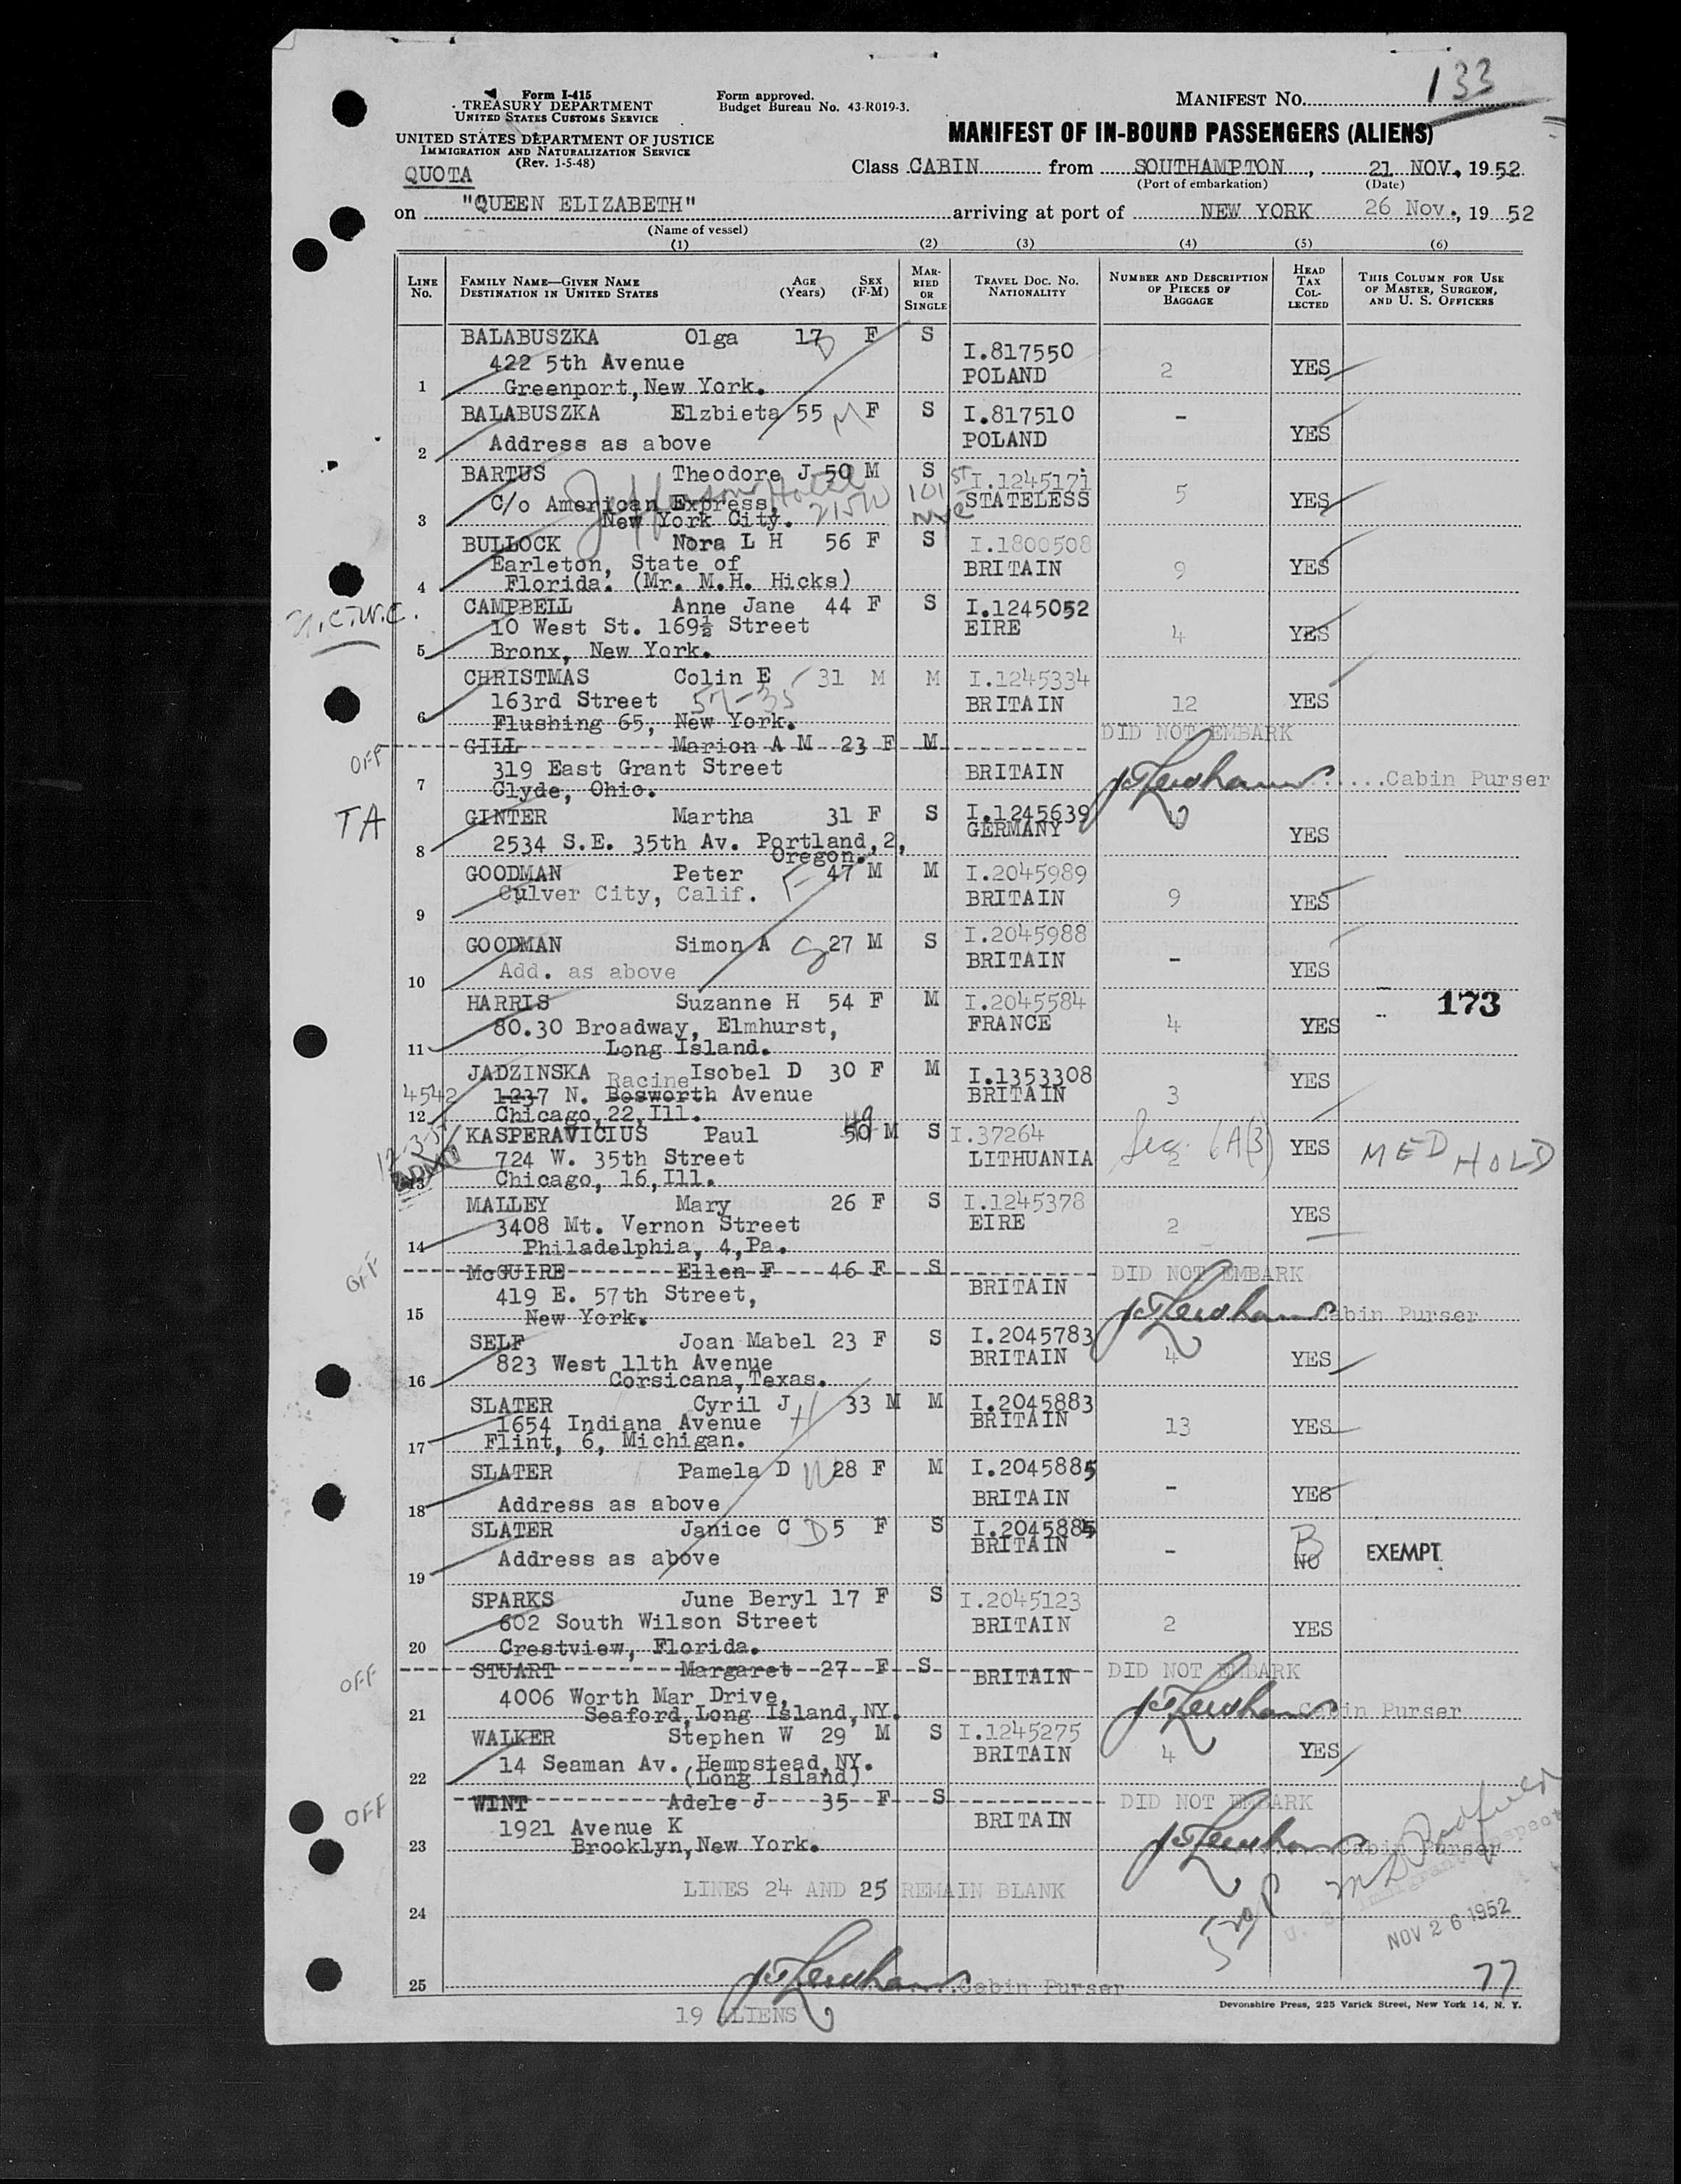 133
Form I-415
TREASURY DEPARTMENT
UNITED STATES CUSTOMS SERVICE
UNITED STATES DEPARTMENT OF JUSTICE
IMMIGRATION AND NATURALIZATION SERVICE
(Rev. 1-5-48)
Form approved.
Budget Bureau No. 43-R019-3.
MANIFEST No.
MANIFEST OF IN-BOUND PASSENGERS (ALIENS)
QUOTA
Class CABIN from SOUTHAMPTON, 21 NOV, 1952
(Port of embarkation) (Date)
on "QUEEN ELIZABETH" arriving at port of NEW YORK 26 Nov., 1952
(Name of vessel)
(1) (2) (3) (4) (5) (6)
LINE No. FAMILY NAME—GIVEN NAME DESTINATION IN UNITED STATES AGE (Years) SEX (F-M) MARRIED OR SINGLE TRAVEL DOC. NO. NATIONALITY NUMBER AND DESCRIPTION OF PIECES OF BAGGAGE HEAD TAX COLLECTED THIS COLUMN FOR USE OF MASTER, SURGEON, AND U. S. OFFICERS
BALABUSZKA Olga 17 D F S I.817550
422 5th Avenue POLAND 2 YES
1 Greenport, New York.
BALABUSZKA Elzbieta 55 M F S I.817510 -
2 Address as above POLAND YES
BARTUS Theodore J 50 M S I.1245171
C/o American Express, STATELESS 5 YES
3 New York City.
Jefferson Hotel 215W 101 ST NYC
BULLOCK Nora L H 56 F S I.1800508
Earleton, State of BRITAIN 9 YES
4 Florida. (Mr. M.H. Hicks)
N.C.W.C.
CAMPBELL Anne Jane 44 F S I.1245052
10 West St. 169½ Street EIRE 4 YES
5 Bronx, New York.
CHRISTMAS Colin E 31 M M I.1245334
163rd Street 57-35 BRITAIN 12 YES
6 Flushing 65, New York.
OFF GILL Marion A M 23 F M DID NOT EMBARK
319 East Grant Street BRITAIN Cabin Purser
7 Clyde, Ohio.
TA GINTER Martha 31 F S I.1245639
2534 S.E. 35th Av. Portland, 2, GERMANY YES
8 Oregon.
GOODMAN Peter F 47 M M I.2045989
Culver City, Calif. BRITAIN 9 YES
9
GOODMAN Simon A S 27 M S I.2045988
Add. as above BRITAIN - YES
10
HARRIS Suzanne H 54 F M I.2045584 173
80.30 Broadway, Elmhurst, FRANCE 4 YES
11 Long Island.
JADZINSKA Isobel D 30 F M I.1353308 YES
4542 1237 N. Bosworth Racine Avenue BRITAIN 3
12 Chicago, 22, Ill.
KASPERAVICIUS Paul 50 49 M S I.37264 Sec. 6A(3) YES MED HOLD
724 W. 35th Street LITHUANIA 2
13 Chicago, 16, Ill.
ADMIT
MALLEY Mary 26 F S I.1245378 YES
3408 Mt. Vernon Street EIRE 2
14 Philadelphia, 4, Pa.
OFF McGUIRE Ellen F 46 F S DID NOT EMBARK
419 E. 57th Street, BRITAIN Cabin Purser
15 New York.
SELF Joan Mabel 23 F S I.2045783
823 West 11th Avenue BRITAIN 4 YES
16 Corsicana, Texas.
SLATER Cyril J H 33 M M I.2045883
1654 Indiana Avenue BRITAIN 13 YES
17 Flint, 6, Michigan.
SLATER Pamela D W 28 F M I.2045885
18 Address as above BRITAIN - YES
SLATER Janice C D 5 F S I.2045885
Address as above BRITAIN - B NO EXEMPT
19
SPARKS June Beryl 17 F S I.2045123
602 South Wilson Street BRITAIN 2 YES
20 Crestview, Florida.
OFF STUART Margaret 27 F S BRITAIN DID NOT EMBARK
4006 Worth Mar Drive, Cabin Purser
21 Seaford, Long Island, NY.
WALKER Stephen W 29 M S I.1245275
14 Seaman Av. Hempstead, NY. BRITAIN 4 YES
22 (Long Island)
OFF WINT Adele J 35 F S DID NOT EMBARK
1921 Avenue K BRITAIN
23 Brooklyn, New York. Cabin Purser
LINES 24 AND 25 REMAIN BLANK
24
NOV 26 1952
25 Cabin Purser 77
19 ALIENS
Devonshire Press, 225 Varick Street, New York 14, N. Y.